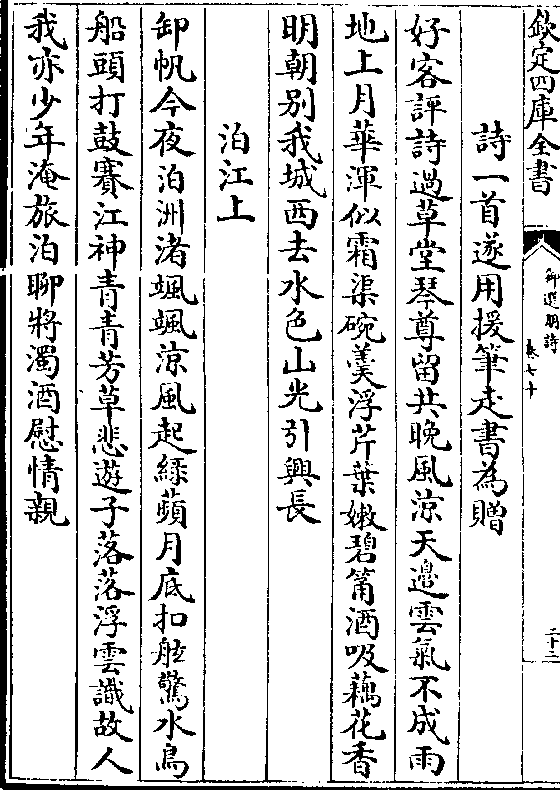 欽定四庫全書
御選明詩
卷七十
二十二
詩一首遂用援筆走書為贈
好客評詩過草堂琴尊留共晚風涼天邊雲氣不成雨
地上月華渾似霜渠碗羹浮芹葉嫩碧筩酒吸藕花香
明朝别我城西去水色山光引興長
泊江上
卸帆今夜泊洲渚颯颯涼風起綠蘋月底扣舷驚水鳥
船頭打鼓賽江神青青芳草悲遊子落落浮雲識故人
我亦少年淹旅泊聊將濁酒慰情親